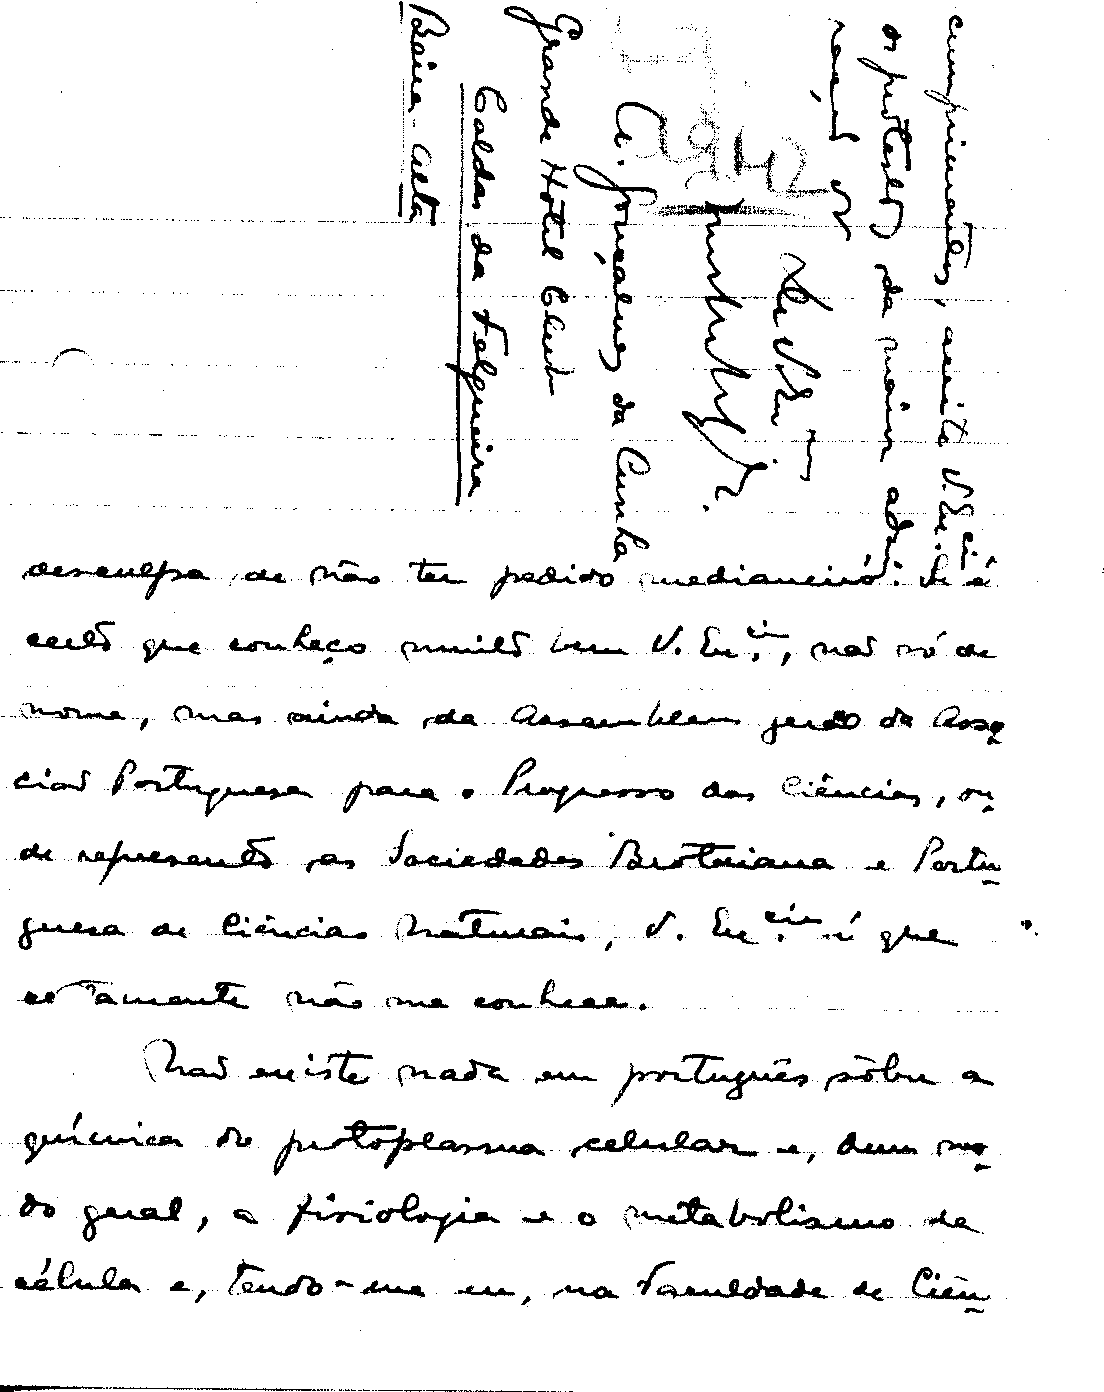 cumprimentos, aceite V. Ex.cia
os protestos da maior admi-
ração de
De V. Ex.cia
A. Gonçalves da Cunha
Grande Hotel Club
Caldas da Felgueira
Beira-Alta
1942
desculpa de não ter pedido medianeiro. Se é
certo que conheço muito bem V. Ex.cia, não só de
nome, mas ainda da Assembleia geral da Asso
ciação Portuguesa para o Progresso das Ciências, on-
de represento as Sociedades Broteriana e Portu-
guesa de Ciências Naturais, V. Ex.cia é que
certamente não me conhece.
Não existe nada em português sôbre a
química do protoplasma celular e, dum mo-
do geral, a fisiologia e o metabolismo da
célula e, tendo-me eu, na Faculdade de Ciên-